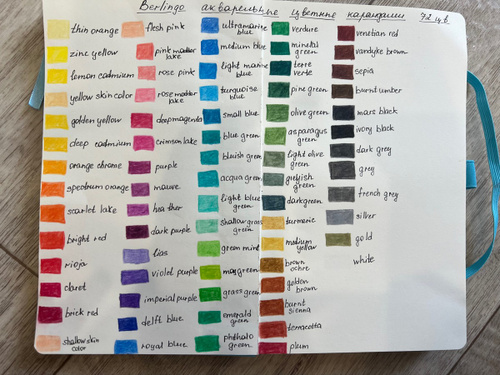 Berlingo акварельные цветные карандаши 72 цв
thin orange
zinc yellow
lemon cadmium
yellow skin color
golden yellow
deep cadmium
orange chrome
spectrum orange
scarlet lake
bright red
rioja
claret
brick red
shallow skin
color
flesh pink
pink madder
lake
rose pink
rose madder
lake
deep magenta
crimson lake
purple
mauve
heather
dark purple
lias
violet purple
imperial purple
delft blue
royal blue
ultramarine
blue
medium blue
light marine
blue
turquoise
blue
small blue
blue green
bluish green
acqua green
light blue
green
shallow grass
green
green mint
may green
grass green
emerald
green
phthalo
green
verdure
mineral
green
terre
verte
pine green
olive green
asparagus
green
light olive
green
greyish
green
dark green
turmeric
medium
yellow
brown
ochre
golden
brown
burnt
sienna
terracotta
plum
venetian red
vandyke brown
sepia
burnt umber
mars black
ivory black
dark grey
grey
french grey
silver
gold
white